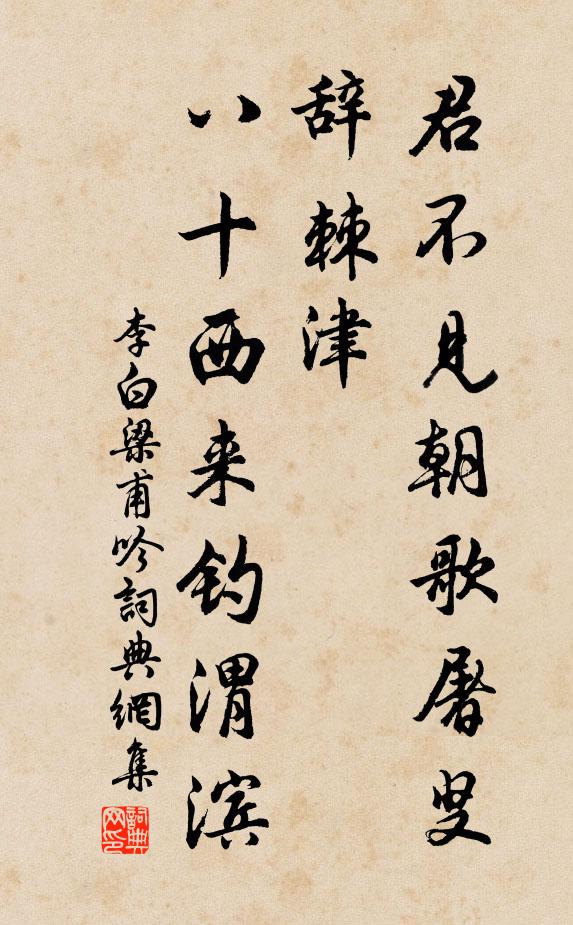 君不见朝歌屠叟
辞棘津
八十西来钓渭滨
李白梁甫吟詞典網集
詞典网印